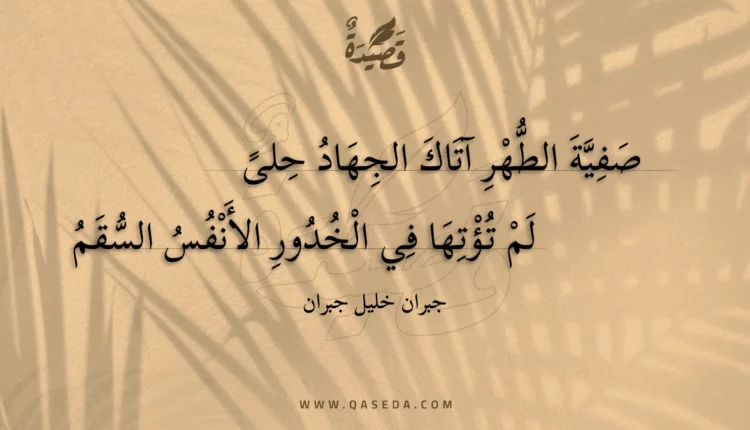 قَصِيْدَةٌ
صَفِيَّةَ الطُّهْرِ آتَاكَ الجِهَادُ حِلىً
لَمْ تُؤْتِهَا فِي الْخُدُورِ الأَنْفُسُ السُّقَمُ
جبران خليل جبران
WWW.QASEDA.COM